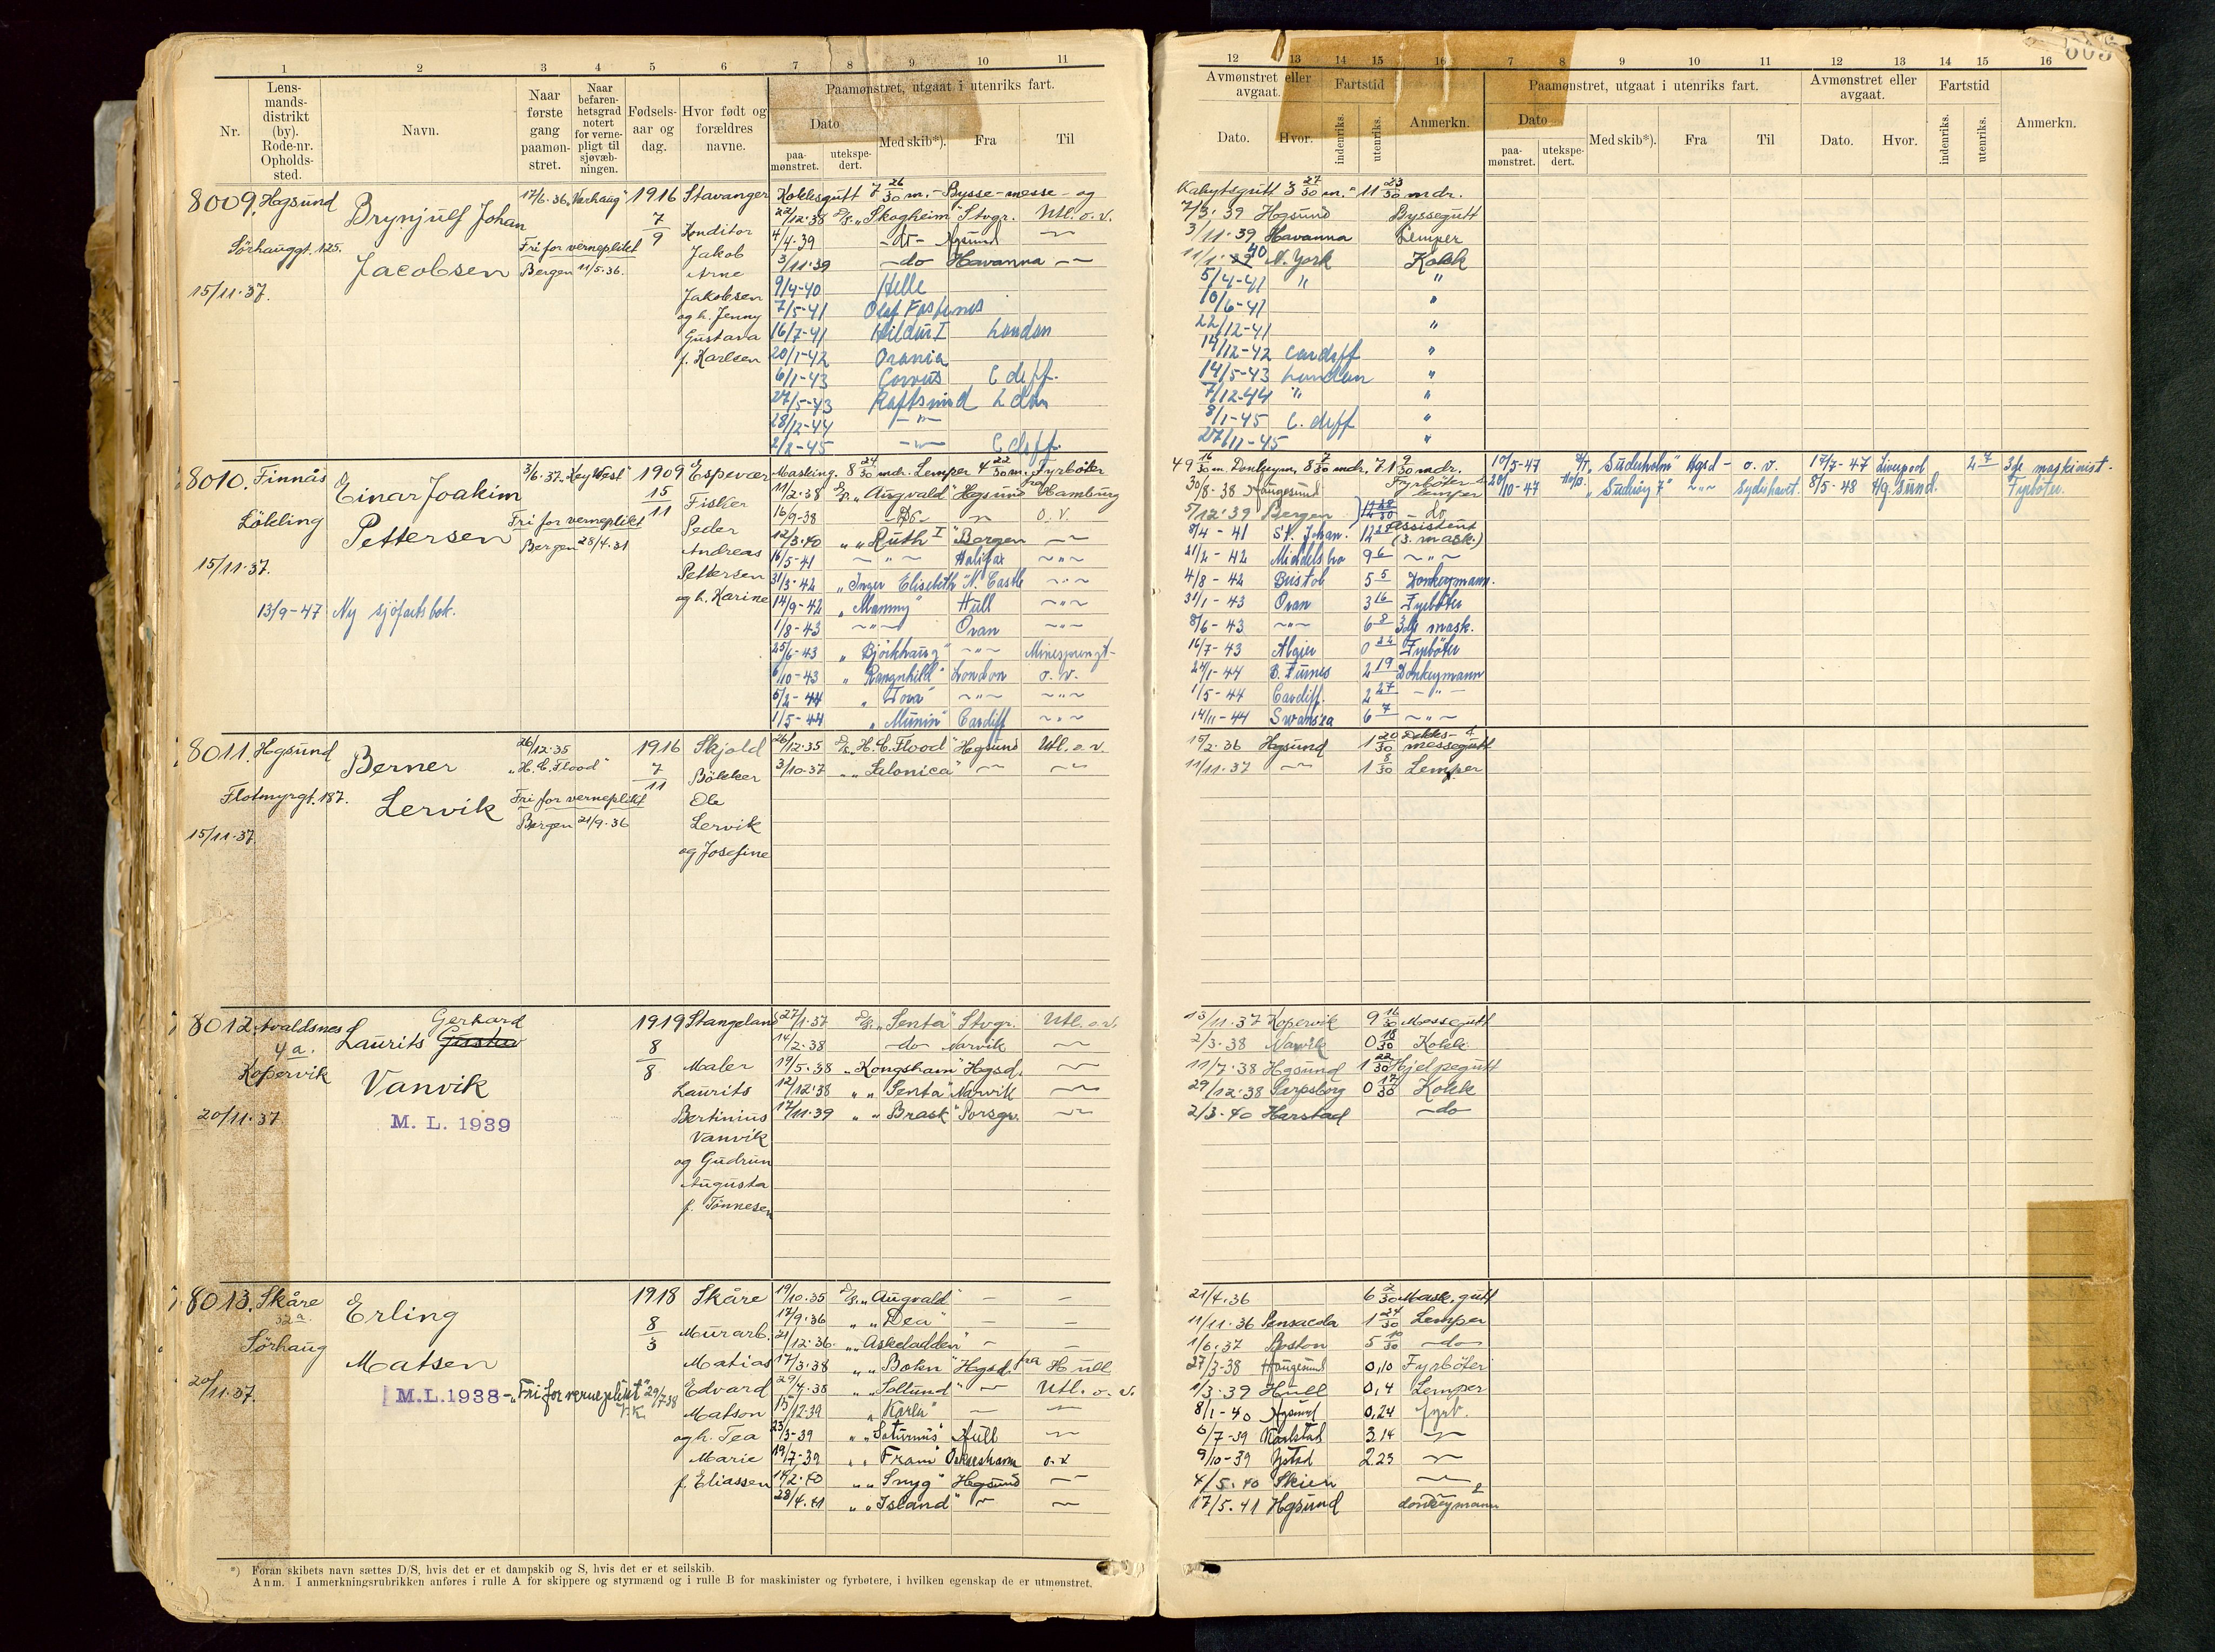 1 2 3 4 5 6 7 8 9 10 11
Nr.
Lensmandsdistrikt (by). Rode-nr. Opholdssted.
Navn.
Naar første gang paamønstret.
Naar befarenhetsgrad notert for vernepligt til sjøvæbningen.
Fødselsaar og dag.
Hvor født og forældres navne.
Paamønstret, utgaat i utenriks fart.
Dato
paamønstret.
utekspedert.
Med skib*).
Fra
Til
12 13 14 15 16 7 8 9 10 11 12 13 14 15 16
Avmønstret eller avgaat.
Fartstid
Dato.
Hvor.
indenriks.
utenriks.
Anmerkn.
Paamønstret, utgaat i utenriks fart.
Dato
paamønstret.
utekspedert.
Med skib*).
Fra
Til
Avmønstret eller avgaat.
Dato.
Hvor.
Fartstid
indenriks.
utenriks.
Anmerkn.
8009. Hgsund
Sörhauggt. 125.
15/11.37.
Brynjulf Johan
Jacobsen
17/6.36
Fri for verneplikt
Bergen 11/5.36.
1916
7/9
Stavanger
Konditor
Jakob
Arne
Jakobsen
og h. Jenny
Gustava
f. Karlsen
Kokksgutt 7 26/30 m. - Bysse-messe- og
22/12.38 D/S. "Skogheim" Stvgr. Utl. o. v.
4/4.39 -do- Hgsund
3/11.39 -do Havanna
9/4-40 Helle
7/5-41 Olaf Fostenes
16/7-41 Hildur I London
20/1-42 Orania
6/1-43 Corvus C deff.
27/5-43 Raftsund Ldon
28/12-44
2/2-45 C deff.
Kahytsgutt 3 27/30 m. 11 23/30 mdr.
7/3. 39 Hgsund Byssegutt
3/11.39 Havanna Lemper
11/1. 40 N. York Kokk
5/4-41 " "
10/6-41 "
22/12-41 "
14/12-42 Cardeff "
14/5-43 London "
7/12-44 " "
8/1-45 C. deff "
27/11-45 "
8010. Finnås
Lökling
15/11.37.
Einar Joakim
Pettersen
13/9-47 Ny sjöfartsbok.
3/6.37. "Key West"
Fri for verneplikt
Bergen 28/4.31
1909
15/11
Espevær
Fisker
Peder
Andreas
Pettersen
og h. Karine
Masking. 8 24/30 mdr. Lemper 4 22/30 m. Fyrböter
11/2.38 D/S. "Augvald" Hgsund fra Hamburg
16/9-38 -Do- " o. v.
12/3.40 " "Ruth I" Bergen
16/5-41 - " - Halifax
31/3-42 "Inger Elisebeth" N. Castle
14/9-42 "Mammy" Hull
1/3-43 Oran
25/6-43 "Björkhaug" Minesprengt
6/10-43 "Rangnhild" London o. v.
5/2-44 "Tova"
1/5-44 "Munin" Cardiff
49 16/30 m. Donkeym. 8 7/30 mdr. 71 9/30 mdr.
30/8.38 Haugesund Fyrböter & lemper
5/12.39 Bergen - do
8/4-41 St. Johan. 12 28 Assistent (3. mask.)
21/2-42 Middelsbro 9 6
4/8-42 Bristol 5 5 Donkeymann.
31/1-43 Oran 3 16 Fyrböter
8/6-43 6 8 3dje mask.
16/7-43 Algier 0 22 Fyrböter
24/1-44 B. Furnes 2 19 Donkeymann
1/5-44 Cardiff. 2 27 - " -
14/11-44 Swansea 6 7
10/5-47 "Suderholm" Hgsd - o. v. 17/7-47 Liverpool 2 7 3dje maskinist.
20/10-47 "Suderöy 7" Sydishavet. 8/5-48 Hg.sund. Fyrböter.
8011. Hgsund
Flotmyrgt. 187.
15/11.37.
Berner
Lervik
26/12.35
"H. C. Flood"
Fri for verneplikt
Bergen 21/9.36
1916
7/11
Skjold
Bökker
Ole
Lervik
og Josefine
26/12.35 D/S. "H. C. Flood" Hgsund Utl. o. v.
3/10.37 " "Salonica"
15/2.36 Hgsund 1 20/30 Dekks- & messegutt
11/11.37 1 8/30 Lemper
8012. Avaldsnes
4 a.
Kopervik
20/11.37.
Laurits Gerhard
Vanvik
M. L. 1939
1919
8/8
Stangeland
Maler
Laurits
Bertinius
Vanvik
og Gudrun
Augusta
f. Tönnesen
27/1.37 D/S. "Senta" Stvgr. Utl. o. v.
14/2.38 do Narvik
19/5.38 "Kongshavn" Hgsd.
12/12.38 " "Senta" Narvik
17/11.39 " "Brask" Porsgr.
13/11.37 Kopervik 9 16/30 Messegutt
2/3.38 Narvik 0 18/30 Kokk
11/7.38 Hgsund 1 22/30 Hjelpegutt
29/12.38 Sarpsborg 0 17/30 Kokk
2/3.40 Harstad -do
8013. Skåre
32 a.
Sörhaug
20/11.37.
Erling
Matsen
M.L. 1938 - "Fri for verneplikt" 29/7 38
1918
8/3
Skåre
Murarb.
Matias
Edvard
Matson
og h. Tea
Marie
f. Eliassen
19/10.35 D/S. "Augvald" - -
17/9.36 " "Dea" - -
21/12.36. " "Askeladden" - -
17/3.38 " "Bokn" Hgsd. fra Hull
29/4.38 " "Solsund" Utl. o. v.
15/12.39 "Karla"
23/3-39 " "Saturnus" Hull
19/7-39 " "Fram" Oskarshavn o. v.
14/2.40 " "Snyg" Hgsund
28/4.41 " "Island"
21/4.36 6 2/30 Mask. gutt
11/11.36 Pensacola 1 24/30 Lemper
1/6.37 Boston 5 10/30 -do-
27/3-38 Haugesund 0,10 Fyrböter
1/3.39 Hull 0,4 Lemper
8/1-40 Hgsund 0,24 fyrb.
6/7-39 Karlstad 3,14
9/10-39 Ystad 2,23
4/5.40 Skien
17/5.41 Hgsund donkeymann
*) Foran skibets navn sættes D/S, hvis det er et dampskib og S, hvis det er et seilskib.
Anm. I anmerkningsrubrikken anføres i rulle A for skippere og styrmænd og i rulle B for maskinister og fyrbøtere, i hvilken egenskap de er utmønstret.